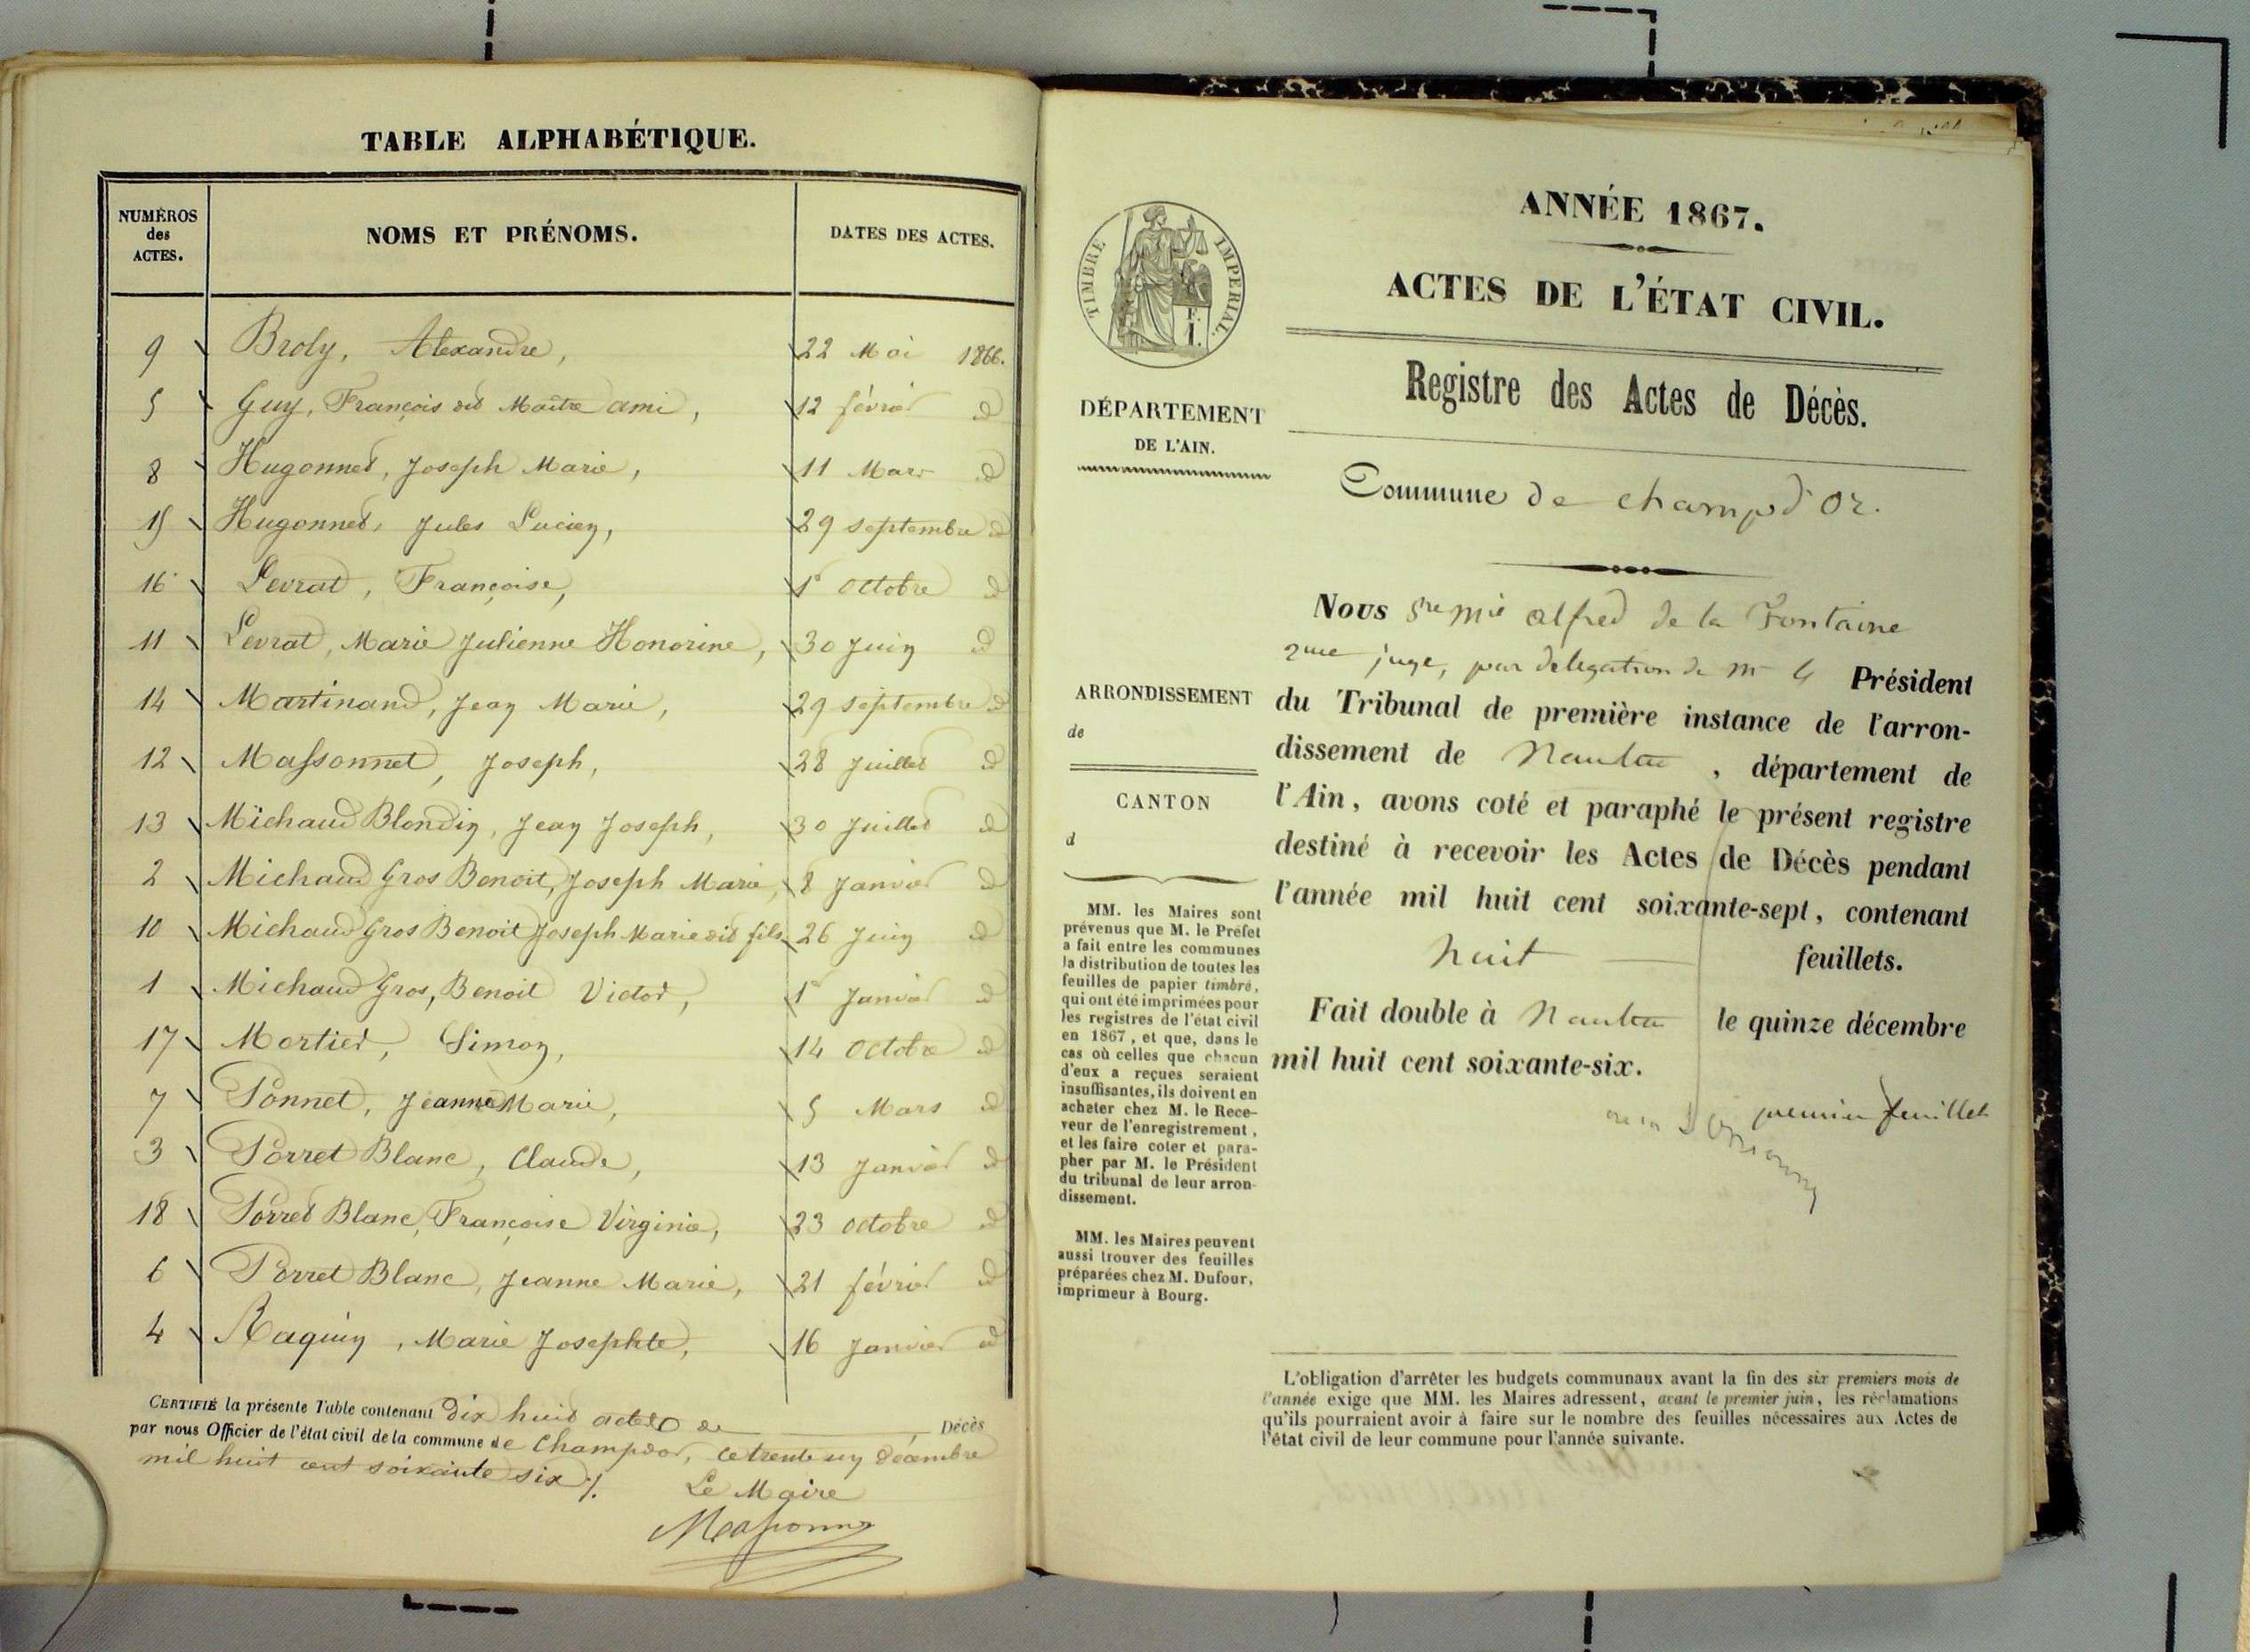 TABLE ALPHABÉTIQUE.
NUMÉROS des ACTES. NOMS ET PRÉNOMS. DATES DES ACTES.
9 Broly, Alexandre, 22 Mai 1866.
5 Guy, François dit Maitre ami, 12 février d
8 Hugonnet, Joseph Marie, 11 Mars d
15 Hugonnet, Jules Lucien, 29 septembre d
16 Levrat, Françoise, 1er Octobre d
11 Levrat, Marie Julienne Honorine, 30 Juin d
14 Martinand, Jean Marie, 29 septembre d
12 Massonnet, Joseph, 28 Juillet d
13 Michaud Blondin, Jean Joseph, 30 Juillet d
2 Michaud Gros Benoit, Joseph Marie, 8 Janvier d
10 Michaud Gros Benoit Joseph Marie dit fils 26 Juin d
1 Michaud Gros, Benoit Victor, 1er Janvier d
17 Mortier, Simon, 14 Octobre d
7 Ponnet, Jeanne Marie, 5 Mars d
3 Perret Blanc, Claude, 13 Janvier d
18 Perret Blanc, Françoise Virginie, 23 octobre d
6 Perret Blanc, Jeanne Marie, 21 février d
4 Raquin, Marie Josephte, 16 Janvier d
CERTIFIÉ la présente Table contenant dix huit actes de Décès
par nous Officier de l'état civil de la commune de Champdor, ce trente un décembre
mil huit cent soixante six ./.
Le Maire
Massonnet
ANNÉE 1867.
ACTES DE L'ÉTAT CIVIL.
Registre des Actes de Décès.
TIMBRE IMPERIAL.
DÉPARTEMENT
DE L'AIN.
Commune de champd'or.
ARRONDISSEMENT
de
CANTON
d
MM. les Maires sont
prévenus que M. le Préfet
a fait entre les communes
la distribution de toutes les
feuilles de papier timbré,
qui ont été imprimées pour
les registres de l'état civil
en 1867, et que, dans le
cas où celles que chacun
d'eux a reçues seraient
insuffisantes, ils doivent en
acheter chez M. le Rece-
veur de l'enregistrement,
et les faire coter et para-
pher par M. le Président
du tribunal de leur arron-
dissement.
MM. les Maires peuvent
aussi trouver des feuilles
préparées chez M. Dufour,
imprimeur à Bourg.
Nous alfred de la Fontaine
2me juge, par delegation de mr le Président
du Tribunal de première instance de l'arron-
dissement de Nantua, département de
l'Ain, avons coté et paraphé le présent registre
destiné à recevoir les Actes de Décès pendant
l'année mil huit cent soixante-sept, contenant
huit feuillets.
Fait double à Nantua le quinze décembre
mil huit cent soixante-six.
premier feuillet
L'obligation d'arrêter les budgets communaux avant la fin des six premiers mois de
l'année exige que MM. les Maires adressent, avant le premier juin, les réclamations
qu'ils pourraient avoir à faire sur le nombre des feuilles nécessaires aux Actes de
l'état civil de leur commune pour l'année suivante.